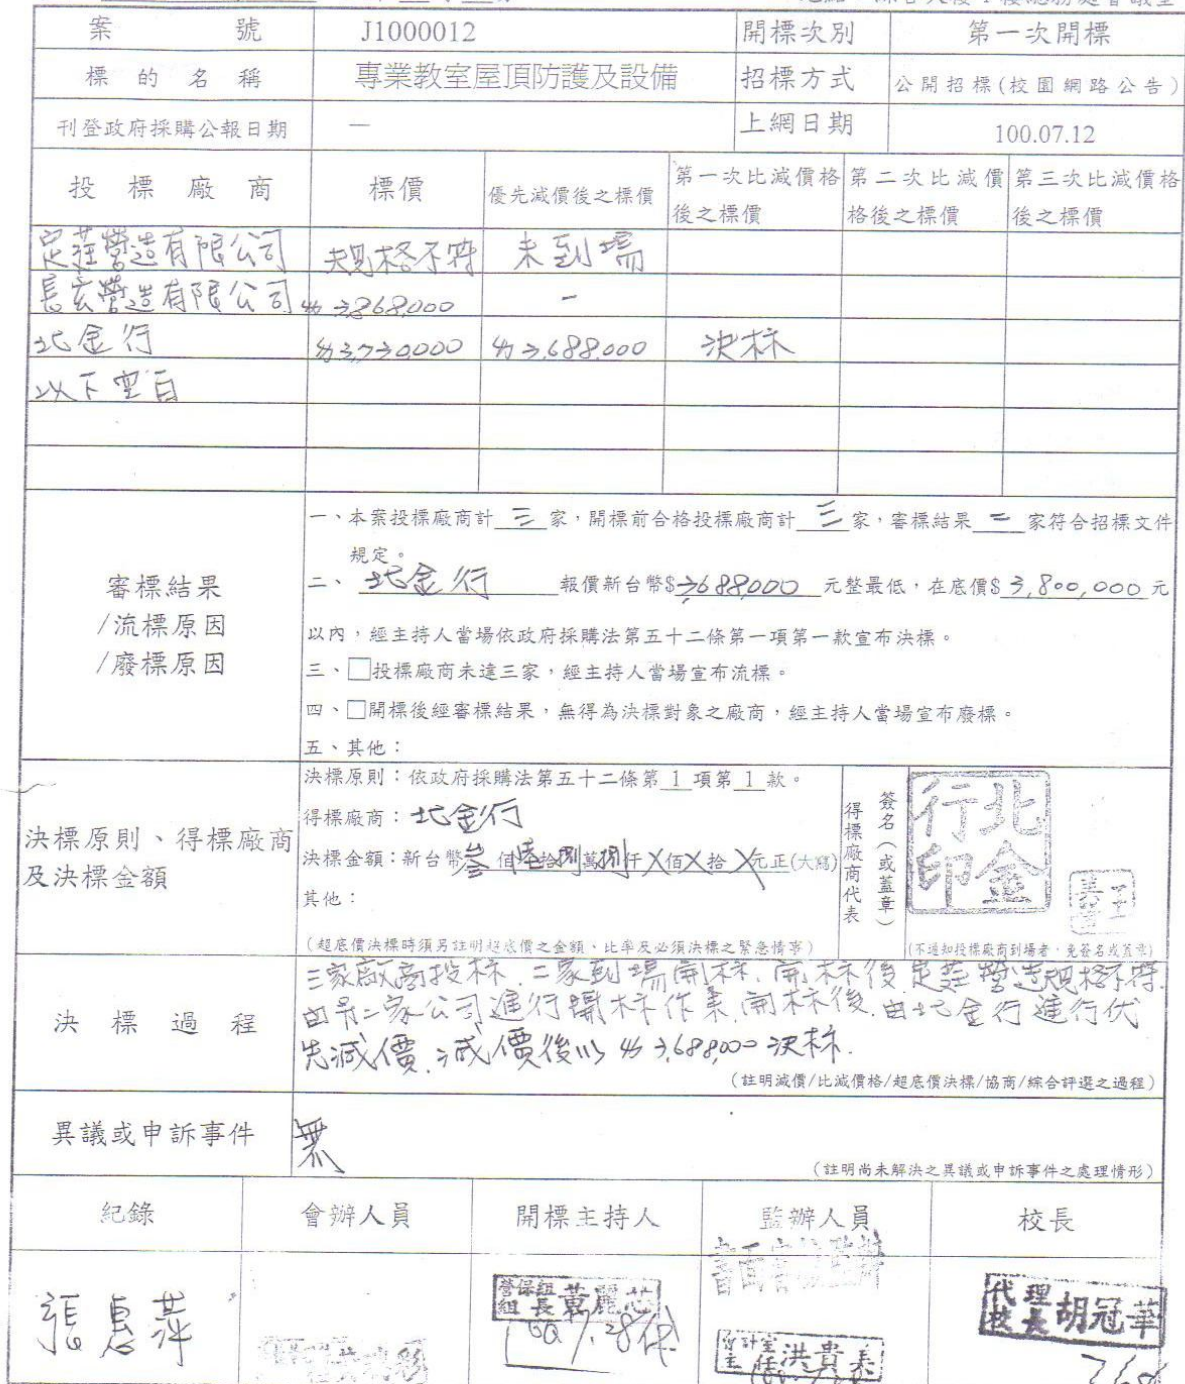 案號 J1000012 開標次別 第一次開標
標的名稱 專業教室屋頂防護及設備 招標方式 公開招標(校園網路公告)
刊登政府採購公報日期 — 上網日期 100.07.12
投標廠商 標價 優先減價後之標價 第一次比減價格後之標價 第二次比減價格後之標價 第三次比減價格後之標價
定莊營造有限公司 規格不符 未到場
長玄營造有限公司 3,868,000 -
北金行 3,730,000 3,688,000 決标
以下空白
審標結果
/流標原因
/廢標原因
一、本案投標廠商計 三 家,開標前合格投標廠商計 三 家,審標結果 二 家符合招標文件
規定。
二、 北金行 報價新台幣$3,688,000 元整最低,在底價$ 3,800,000 元
以內,經主持人當場依政府採購法第五十二條第一項第一款宣布決標。
三、□投標廠商未達三家,經主持人當場宣布流標。
四、□開標後經審標結果,無得為決標對象之廠商,經主持人當場宣布廢標。
五、其他:
決標原則、得標廠商
及決標金額
決標原則:依政府採購法第五十二條第 1 項第 1 款。
得標廠商:北金行
決標金額:新台幣叁佰陸拾捌萬捌仟X佰X拾X元正(大寫)
其他:
(超底價決標時須另註明超底價之金額、比率及必須決標之緊急情事)
得標廠商代表
簽名(或蓋章)
北金行印
(不通知投標廠商到場者,免簽名或蓋章)
決標過程
三家廠商投标,二家到場開标,開标後定莊營造規格不符.
由另二家公司進行開标作業,開标後,由北金行進行优
先減價,減價後以 3,688,000 決标.
(註明減價/比減價格/超底價決標/協商/綜合評選之過程)
異議或申訴事件 無
(註明尚未解決之異議或申訴事件之處理情形)
紀錄 會辦人員 開標主持人 監辦人員 校長
張惠萍
營保組組長
書面審核監辦
會計室主任洪貴
代理校長胡冠華